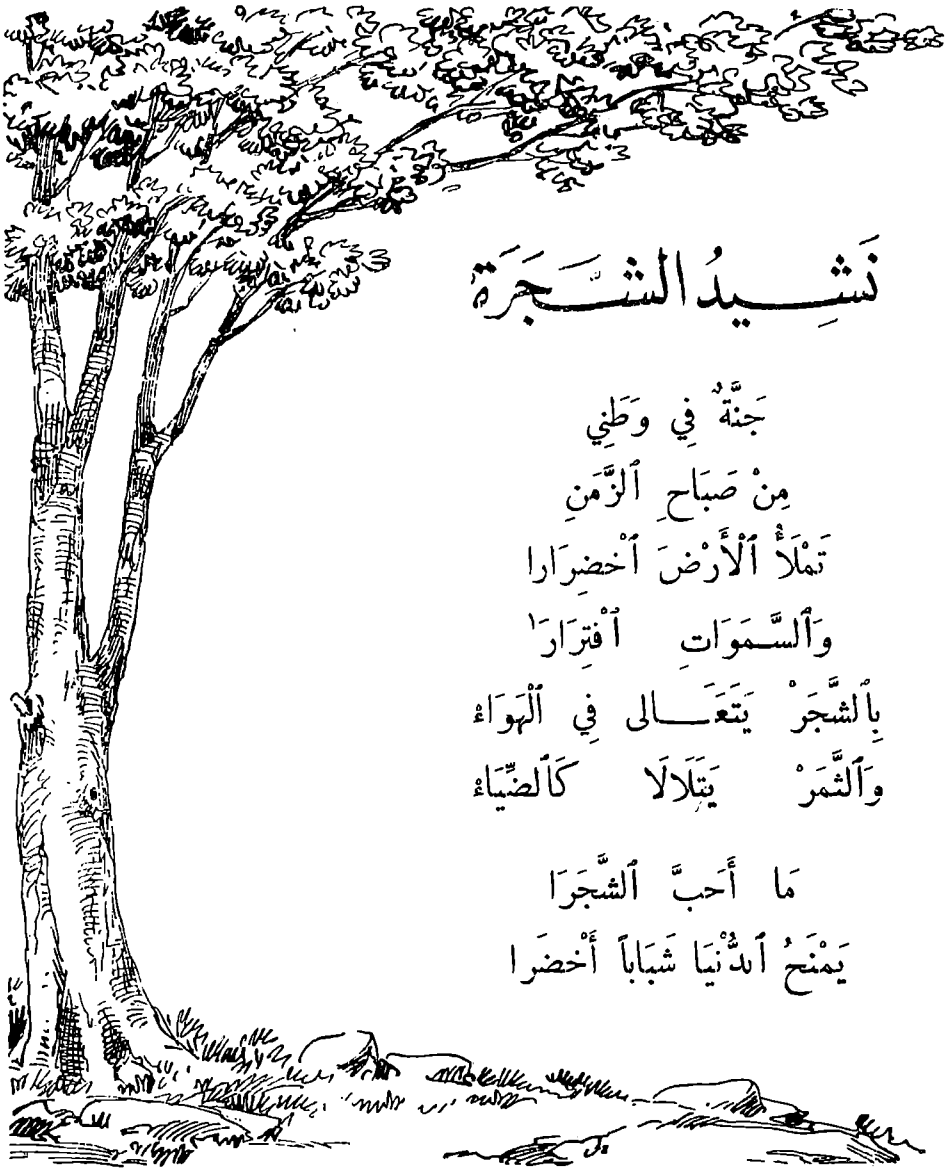 نَشِيدُ الشَّجَرَة
جَنَّةٌ فِي وَطَنِي
مِنْ صَبَاحِ ٱلزَّمَنِ
تَمْلَأُ ٱلْأَرْضَ ٱخْضِرَارا
وَٱلسَّمَوَاتِ ٱفْتِرَارَا
بِٱلشَّجَرْ يَتَعَالى فِي ٱلْهَوَاءْ
وَٱلثَّمَرْ يَتَلَالَا كَٱلضِّيَاءْ
مَا أَحَبَّ ٱلشَّجَرَا
يَمْنَحُ ٱلدُّنْيَا شَبَاباً أَخْضَرا